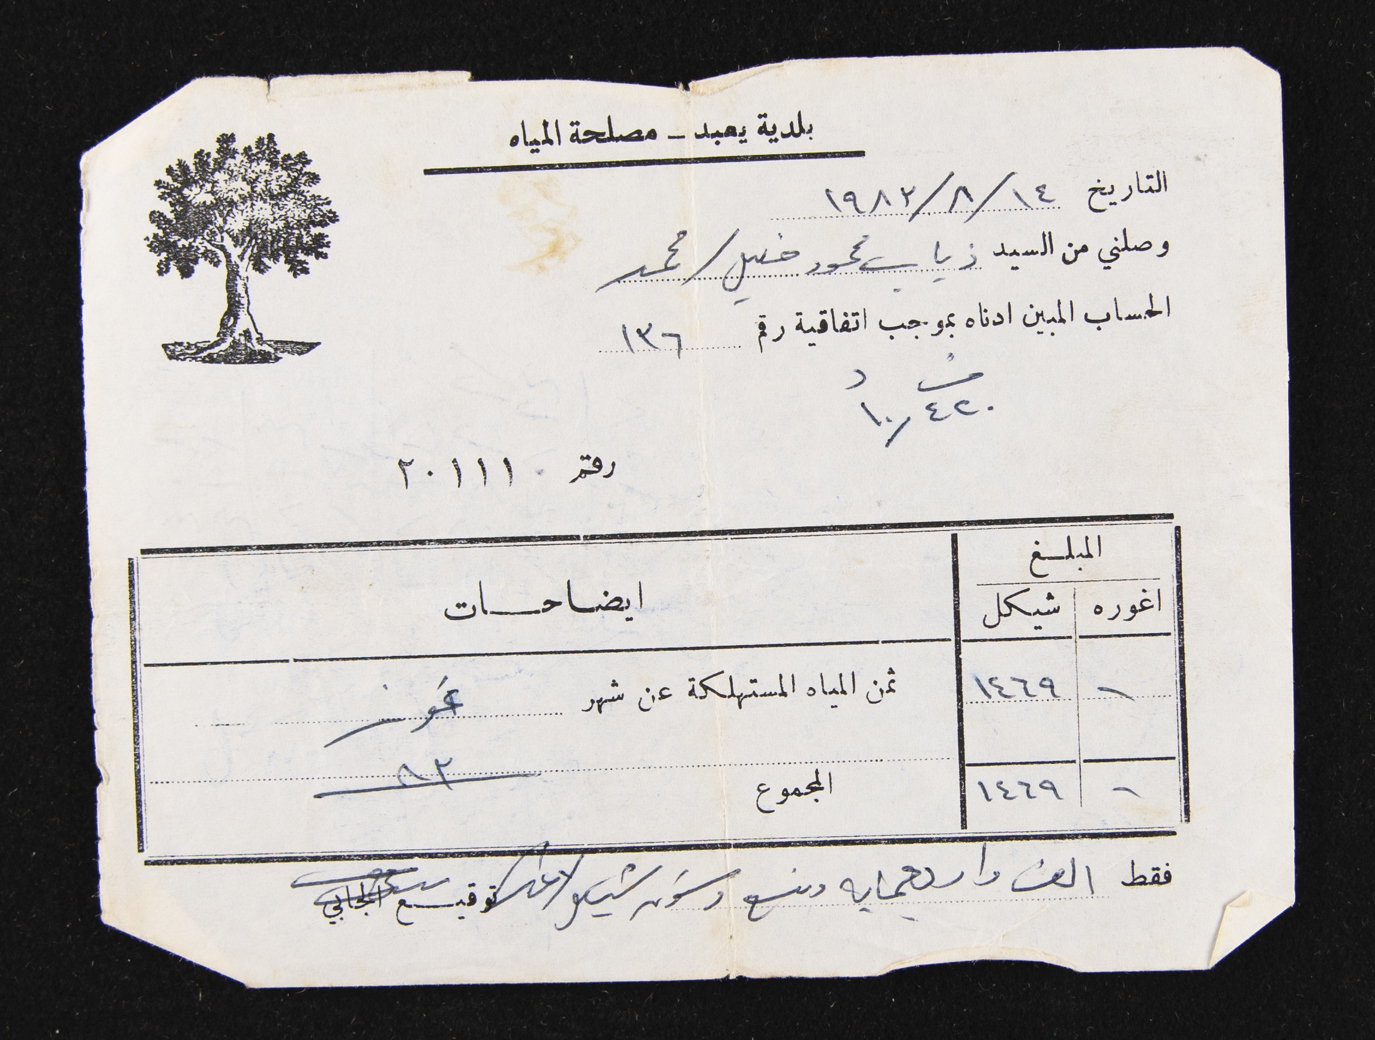 بلدية يعبد ـ مصلحة المياه
التاريخ ١٩٨٢/٨/١٤
وصلني من السيد ذياب محمود خليل / محمد
الحساب المبين ادناه بموجب اتفاقية رقم ١٣٦
ف د
١٠٫٤٢٠
رقم ٢٠١١١
المبلغ
اغوره شيكل ايضاحات
- ١٤٦٩ ثمن المياه المستهلكة عن شهر تموز
٨٢
- ١٤٦٩ المجموع
فقط الف واربعمايه وتسع وستون شيكل لاغير توقيع الجابي